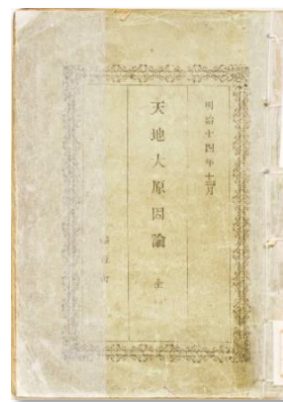 明治十四年十二月
天地人原因論 全